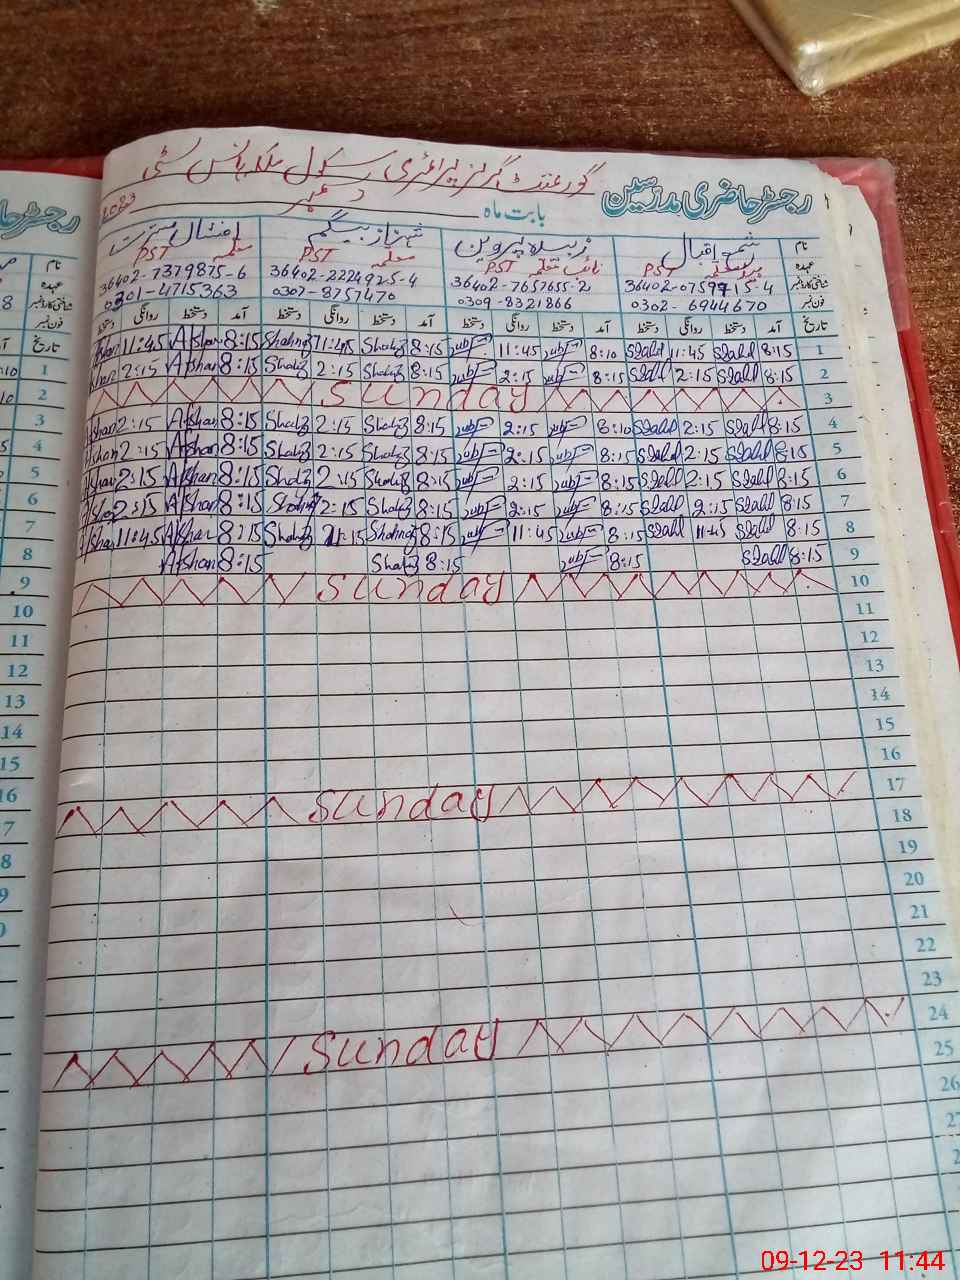 گورنمنٹ گرلز پرائمری سکول ملکہ ہانس سٹی
رجسٹر حاضری مدرسین
بابت ماہ دسمبر 2023
نام شمع اقبال زبیدہ پروین شہناز بیگم افشاں مسرت
عہدہ PST معلمہ PST نائب معلمہ PST معلمہ PST
شناختی کارڈ نمبر 36402-0759915-4 36402-7657655-2 36402-2224925-4 36402-7379875-6
فون نمبر 0302-6944670 0309-8321866 0307-8757470 0301-4715363
تاریخ آمد دستخط روانگی دستخط آمد دستخط روانگی دستخط آمد دستخط روانگی دستخط آمد دستخط روانگی دستخط
1 8:15 11:45 8:10 11:45 8:15 Shahz 11:45 Shahnz 8:15 Afshan 11:45 Afshan
2 8:15 2:15 8:15 2:15 8:15 Shahz 2:15 Shahz 8:15 Afshan 2:15 Afshan
3 Sunday
4 8:15 2:15 8:10 2:15 8:15 Shahz 2:15 Shahz 8:15 Afshan 2:15 Afshan
5 8:15 2:15 8:15 2:15 8:15 Shahz 2:15 Shahz 8:15 Afshan 2:15 Afshan
6 8:15 2:15 8:15 2:15 8:15 Shahz 2:15 Shahz 8:15 Afshan 2:15 Afshan
7 8:15 2:15 8:15 2:15 8:15 Shahz 2:15 Shahnz 8:15 Afshan 2:15
8 8:15 11:45 8:15 11:45 8:15 Shahnz Shahz 8:15 Afshan 11:45 Afshan
9 8:15 8:15 8:15 Shahz 8:15 Afshan
10 Sunday
11
12
13
14
15
16
17 Sunday
18
19
20
21
22
23
24 Sunday
25
26
27
رجسٹر حا
نام
عہدہ
شناختی کارڈ نمبر
فون نمبر
تاریخ
1
2
3
4
5
6
7
8
9
10
11
12
13
14
15
16
09-12-23 11:44